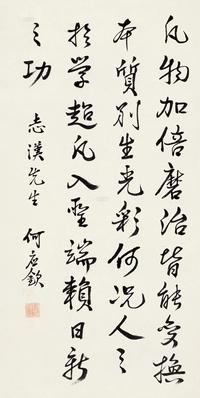 凡物加倍磨治皆能變換
本質別生光彩何況人之
於学超凡入聖端賴日新
之功
志漢先生
何應欽